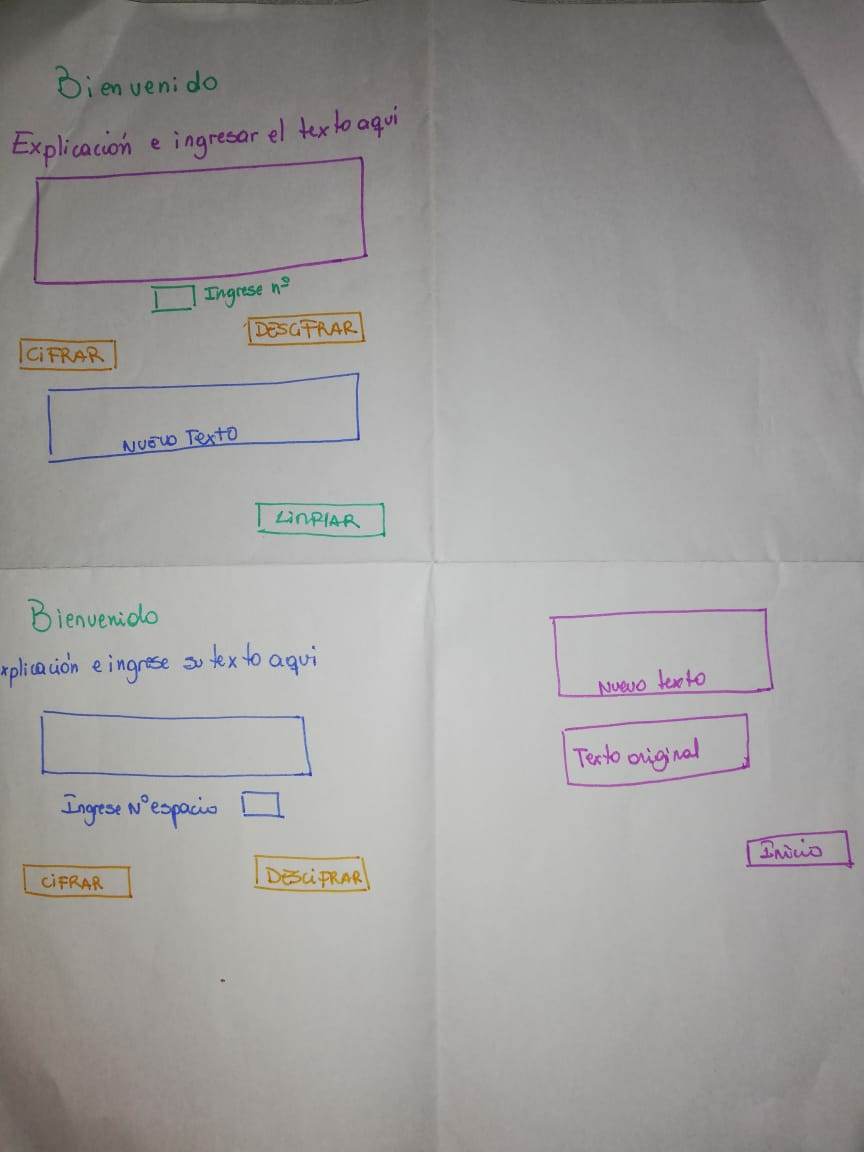 Bienvenido
Explicación e ingresar el texto aqui
Ingrese nº
DESCIFRAR
CiFRAR
NUEVO Texto
LIMPIAR
Bienvenido
xplicación e ingrese su texto aqui
Ingrese Nº espacio
CiFRAR
DESCiFRAR
Nuevo texto
Texto original
Inicio